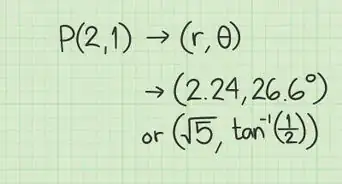 P(2,1) → (r, θ)
→ (2.24, 26.6°)
or (√5, tan⁻¹(1/2))